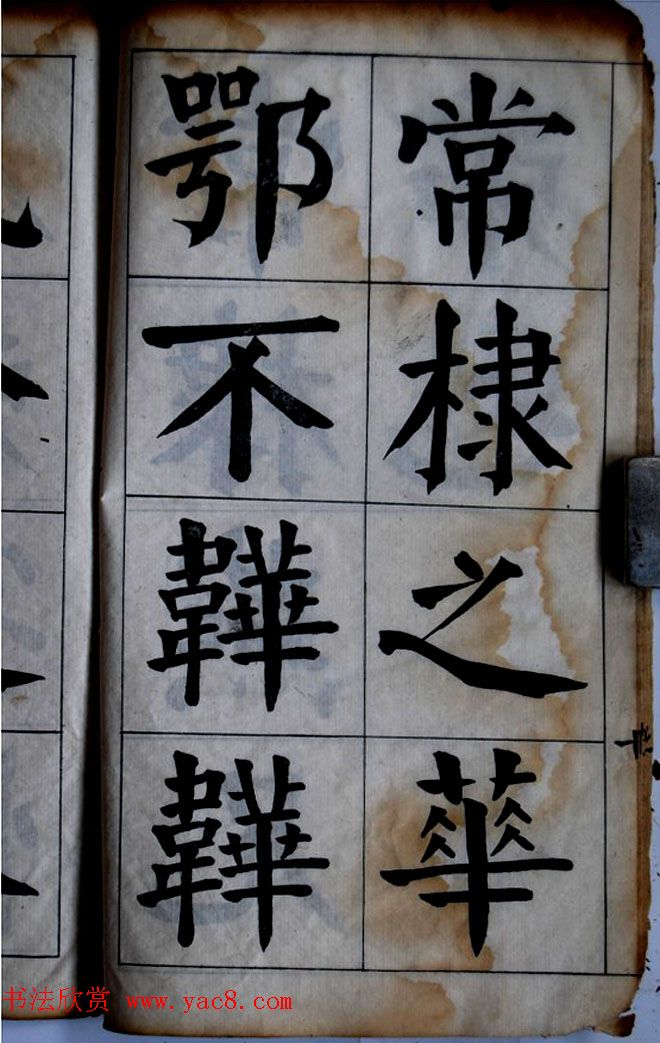 常棣之華
鄂不韡韡
书法欣赏 www.yac8.com